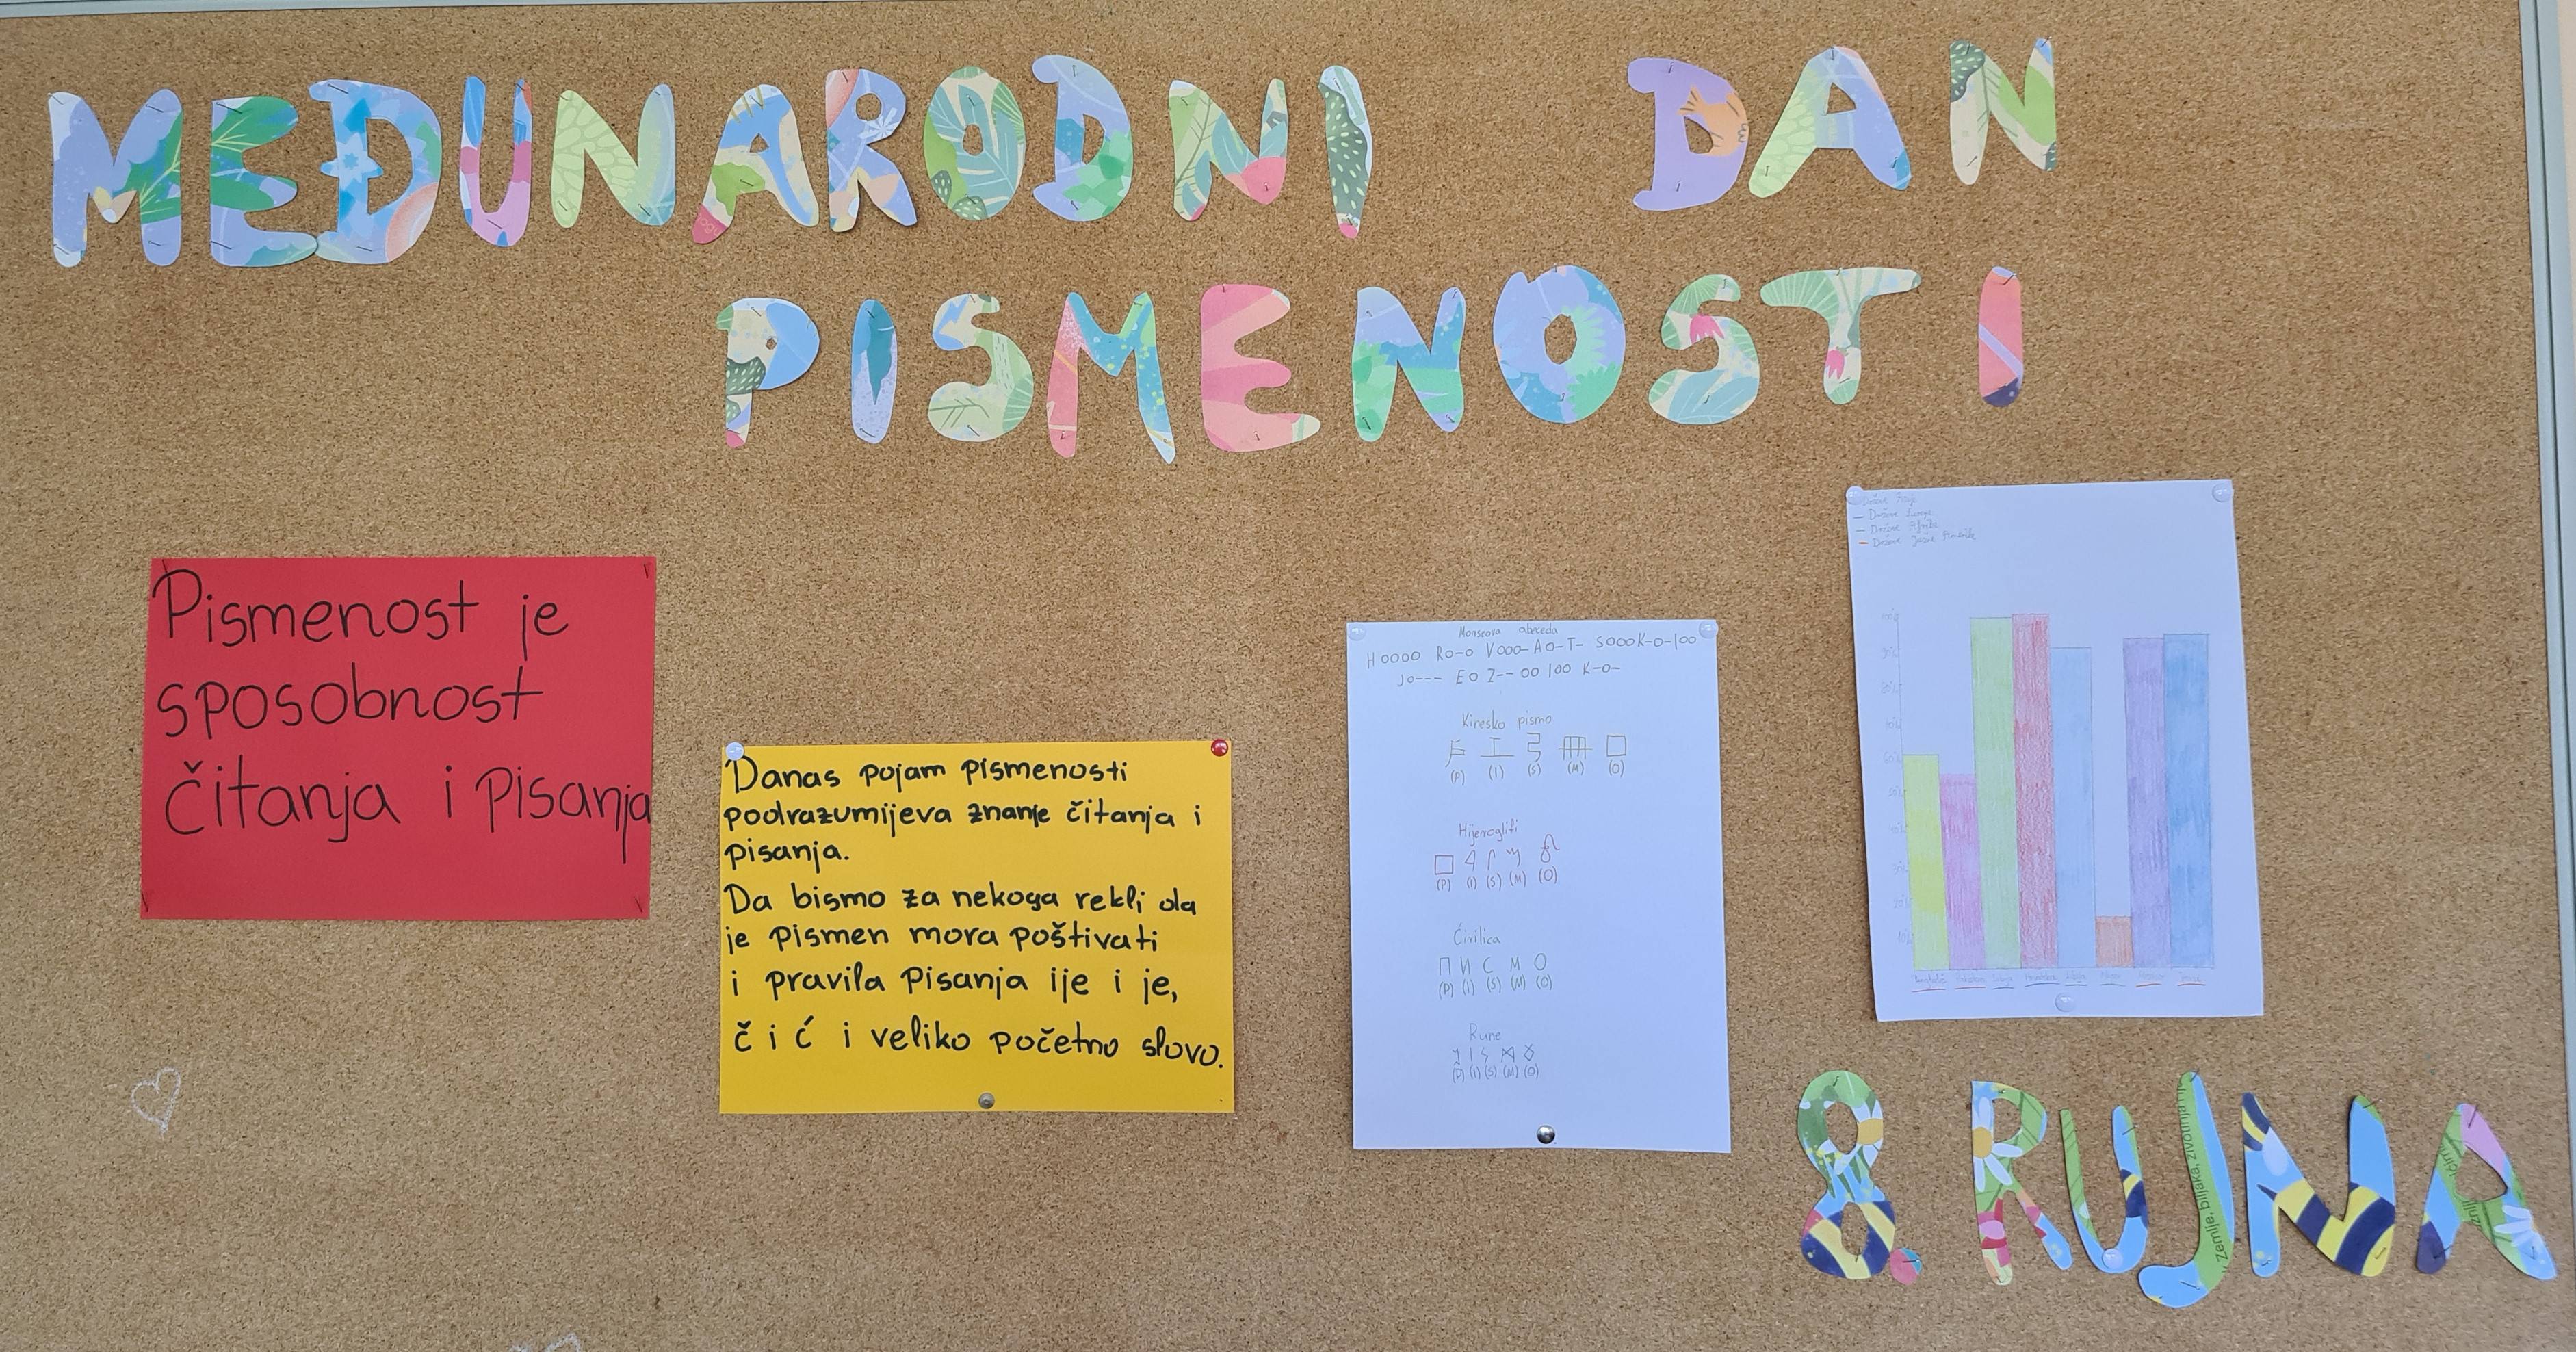 MEĐUNARODNI DAN
PISMENOSTI
Pismenost je
sposobnost
čitanja i pisanja
Danas pojam pismenosti
podrazumijeva znanje čitanja i
pisanja.
Da bismo za nekoga rekli da
je pismen mora poštivati
i pravila pisanja ije i je,
č i ć i veliko početno slovo.
Morseova abeceda
H0000 R0-0 V000- A0- T- S000K-0-100
J0--- E0 Z--00 100 K-0-
Kinesko pismo
(P) (I) (S) (M) (O)
Hijeroglifi
(P) (I) (S) (M) (O)
Ćirilica
П И С М О
(P) (I) (S) (M) (O)
Rune
(P) (I) (S) (M) (O)
Države
Države
Države
Države Južne Amerike
8. RUJNA
Zemlje, biljaka, životinja